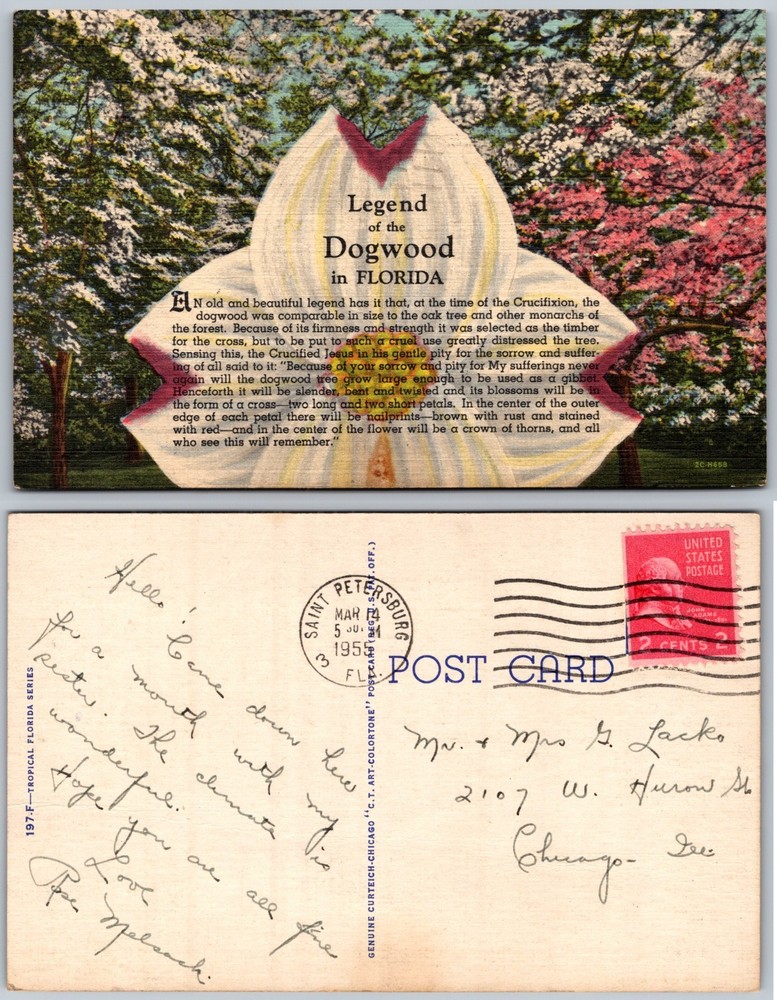 Legend
of the
Dogwood
in FLORIDA
AN old and beautiful legend has it that, at the time of the Crucifixion, the
dogwood was comparable in size to the oak tree and other monarchs of
the forest. Because of its firmness and strength it was selected as the timber
for the cross, but to be put to such a cruel use greatly distressed the tree.
Sensing this, the Crucified Jesus in his gentle pity for the sorrow and suffer-
ing of all said to it: "Because of your sorrow and pity for My sufferings never
again will the dogwood tree grow large enough to be used as a gibbet.
Henceforth it will be slender, bent and twisted and its blossoms will be in
the form of a cross—two long and two short petals. In the center of the outer
edge of each petal there will be nailprints—brown with rust and stained
with red—and in the center of the flower will be a crown of thorns, and all
who see this will remember."
2C-H658
197-F—TROPICAL FLORIDA SERIES
Hello! Came down here
for a month with my
sister. The climate is
wonderful.
Hope you are all fine
Love
Rose
GENUINE CURTEICH-CHICAGO "C.T. ART-COLORTONE" POST CARD (REG. U.S. PAT. OFF.)
SAINT PETERSBURG
MAR 14
5
1955
FLA.
3
UNITED
STATES
POSTAGE
JOHN
ADAMS
2 CENTS 2
POST CARD
Mr. + Mrs G. Lacko
2107 W. Huron St
Chicago - Ill